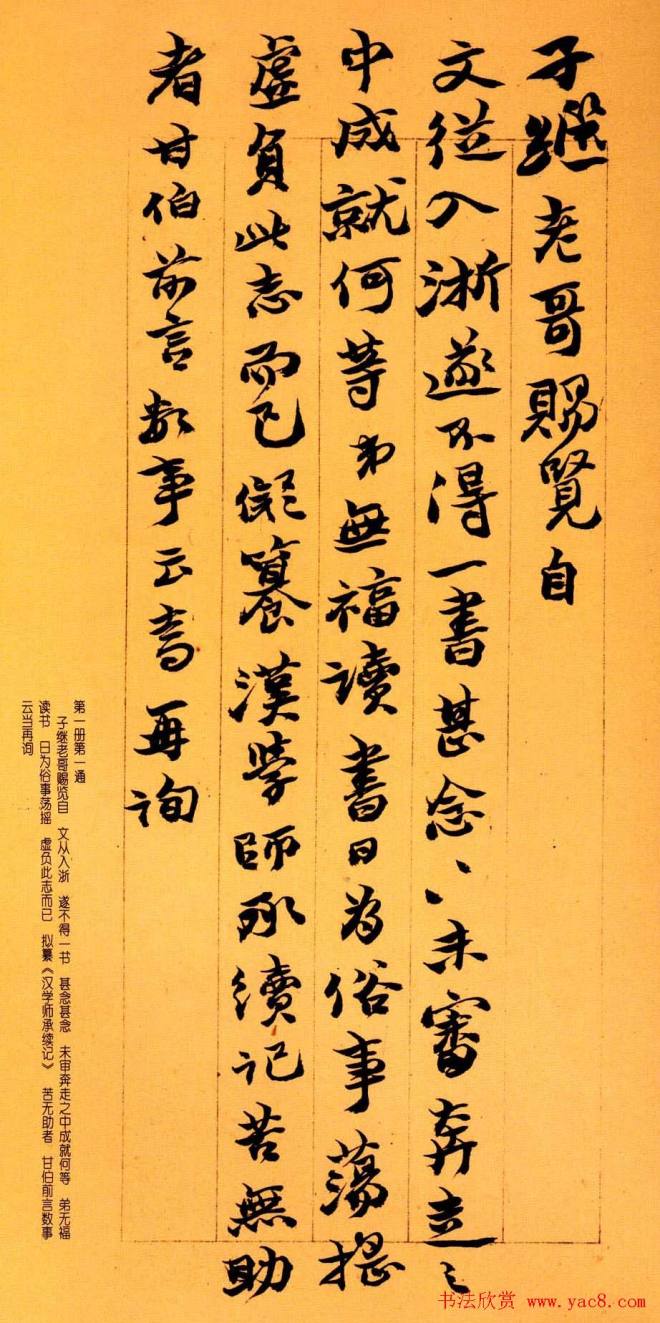 子繼老哥賜覽自
文從入浙遂不得一書甚念〻未審奔走之
中成就何等弟無福讀書日為俗事蕩摇
虛負此志而已儗纂漢學師承續記苦無助
者甘伯前言數事云當再詢
第一册第一通
子继老哥赐览自 文从入浙 遂不得一书 甚念甚念 未审奔走之中成就何等 弟无福
读书 日为俗事荡摇 虚负此志而已 拟纂《汉学师承续记》 苦无助者 甘伯前言数事
云当再询
书法欣赏 www.yac8.com